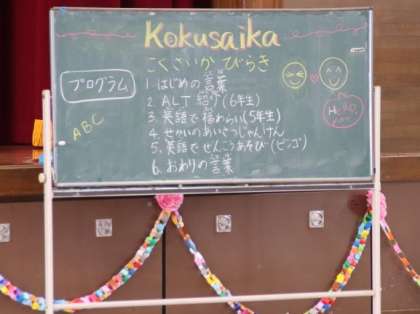 Kokusaika
こくさいか びらき
プログラム
1. はじめの言葉
2. ALT 紹介 (6年生)
3. 英語で福わらい (5年生)
4. せかいのあいさつじゃんけん
5. 英語でせんこうあそび (ビンゴ)
6. おわりの言葉
ABC